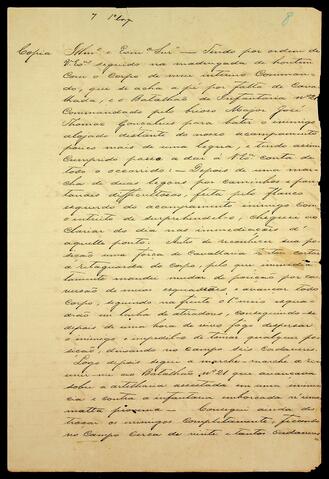 7 1º Corpo
8
Copia Illmº e Exmº Snr — Tendo por ordem de
V. Exª seguido na madrugada de hontem
com o Corpo de meu interino Comman-
do, que se acha a pé por falta de Caval-
hada, e o Batalhão de Infantaria nº 21
Commandado pelo brioso Major José
Thomaz Gonçalves para bater o inimigo
alojado distante do nosso acampamento
pouco mais de uma legua, e tendo assim
cumprido passo a dar á V. Exª conta de
todo o occorrido: — Depois de uma mar-
cha de duas legoas por caminhos e pan-
tanaes difficultosos, feita pelo flanco
esquerdo do acampamento inimigo com
o intuito de surprehendel-o, cheguei ao
clarear do dia nas immediações d'
aquelle ponto. Antes de reconhecer sua po-
sição uma força de Cavallaria tentou cortar
a retaguarda do Corpo, pelo que immedia-
tamente mandei mudar de posição por con-
versão de meios esquadrões e avançar todo
Corpo, seguindo na frente o 1º meio esqua-
drão em linha de atiradores, conseguindo-se
depois de uma hora de vivo fogo dispersar
o inimigo e impedil-o de tomar qualquer po-
sição, deixando no Campo seis Cadaveres.
Logo depois segui a marche-marche a re-
unir-me ao Batalhão nº 21 que avançava
sobre a artilharia assestada em uma eminen-
cia e contra a infantaria emboscada n'uma
matta proxima — Consegui ainda des-
troçar os inimigos completamente, ficando
no Campo cerca de vinte e tantos cadaveres